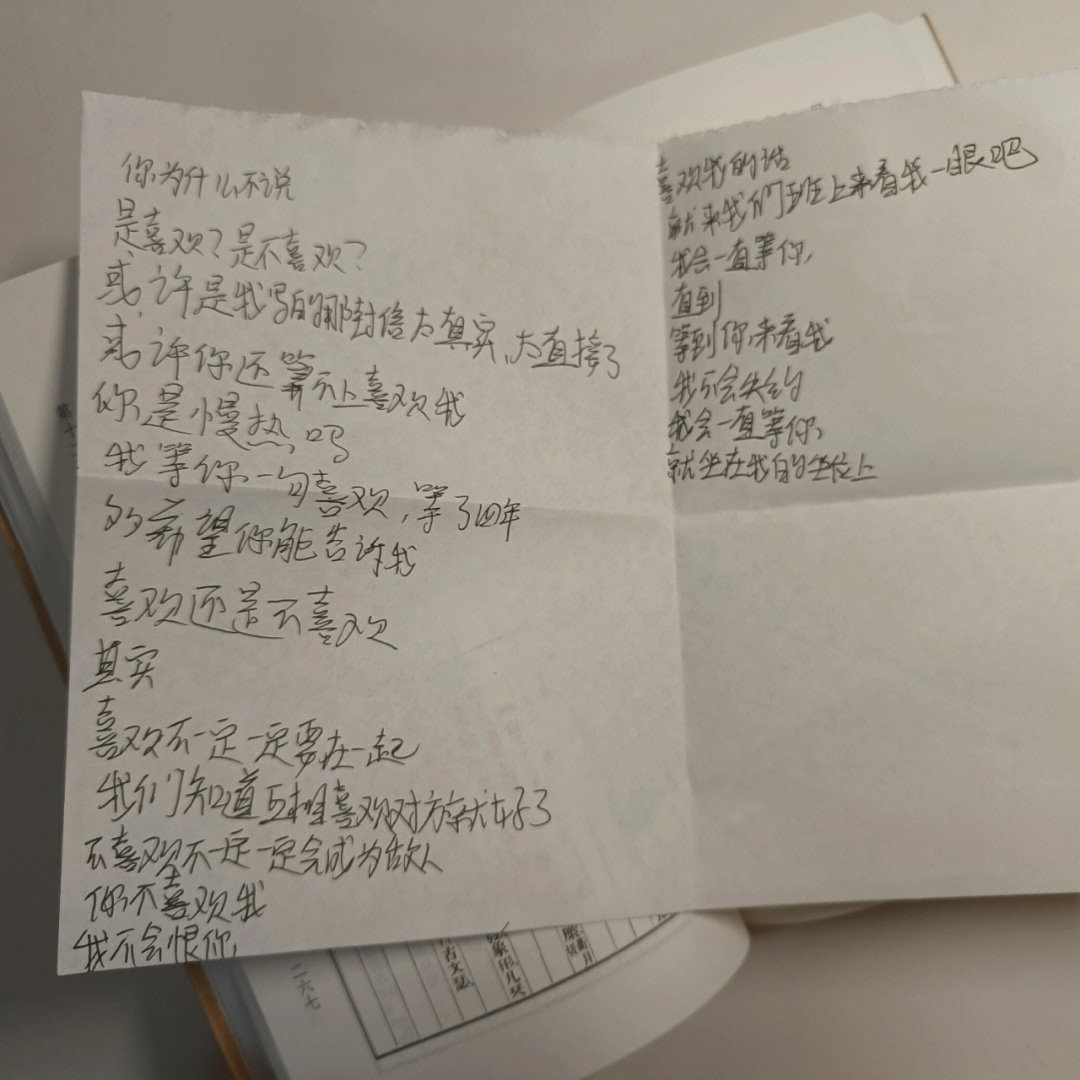 你为什么不说
是喜欢？是不喜欢？
或许是我写的那封信太真实、太直接了
或许你还算不上喜欢我
你是慢热吗
我等你一句喜欢，等了四年
希望你能告诉我
喜欢还是不喜欢
其实
喜欢不一定一定要在一起
我们知道互相喜欢对方就好了
不喜欢不一定一定会成为敌人
你不喜欢我
我不会恨你
喜欢我的话
就来我们班上来看我一眼吧
我会一直等你
直到
等到你来看我
我不会失约
我会一直等你
就坐在我的坐位上
二六七